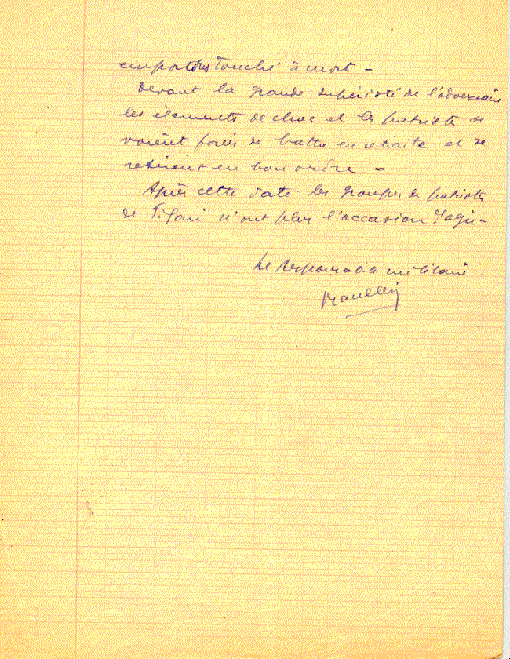 touché à mort -
Devant la grande supériorité de l'adversaire
les éléments de choc et les patriotes se
voient forcés de battre en retraite et se
retirent en bon ordre -
Après cette date les groupes de patriotes
de n'ont plus l'occasion d'agir -
Le Responsable militaire